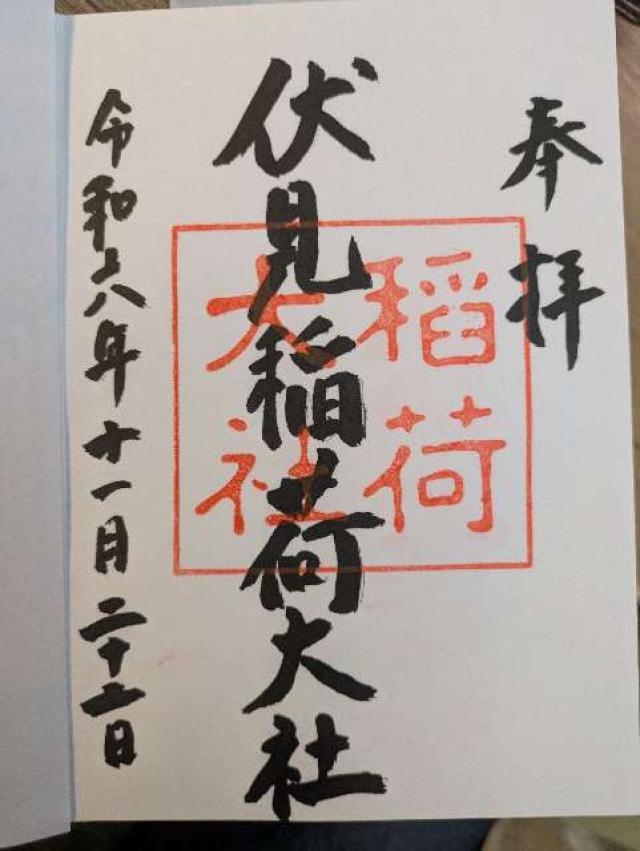 奉拝
伏見稲荷大社
令和六年十一月二十二日
稲荷
大社